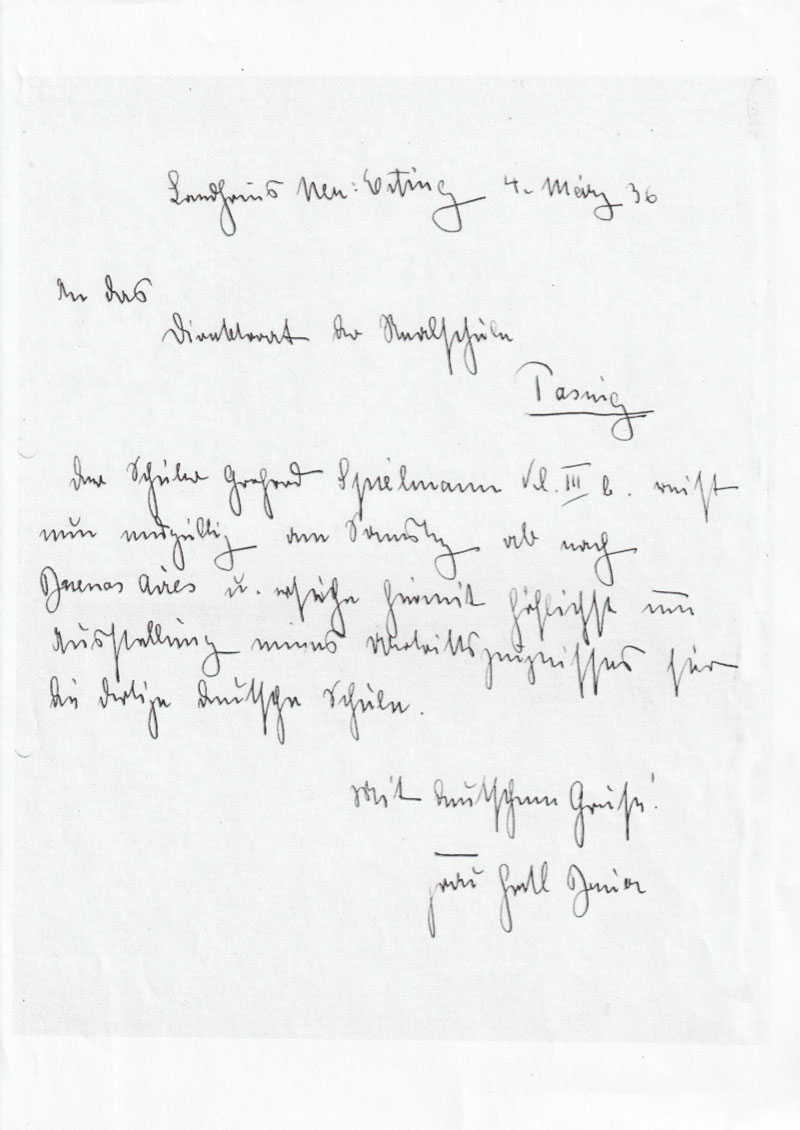 Landhaus Neu: Esting 4. März 36
An das
Direktorat der Realschule
Pasing
Der Schüler Gerhard Spielmann Kl. III b. reist
nun endgültig am Samstag ab nach
Buenos Aires u. ersuche hiermit höflichst um
Ausstellung eines Übertrittszeugnisses für
die dortige deutsche Schule.
Mit deutschem Gruß!
Frau Gretl